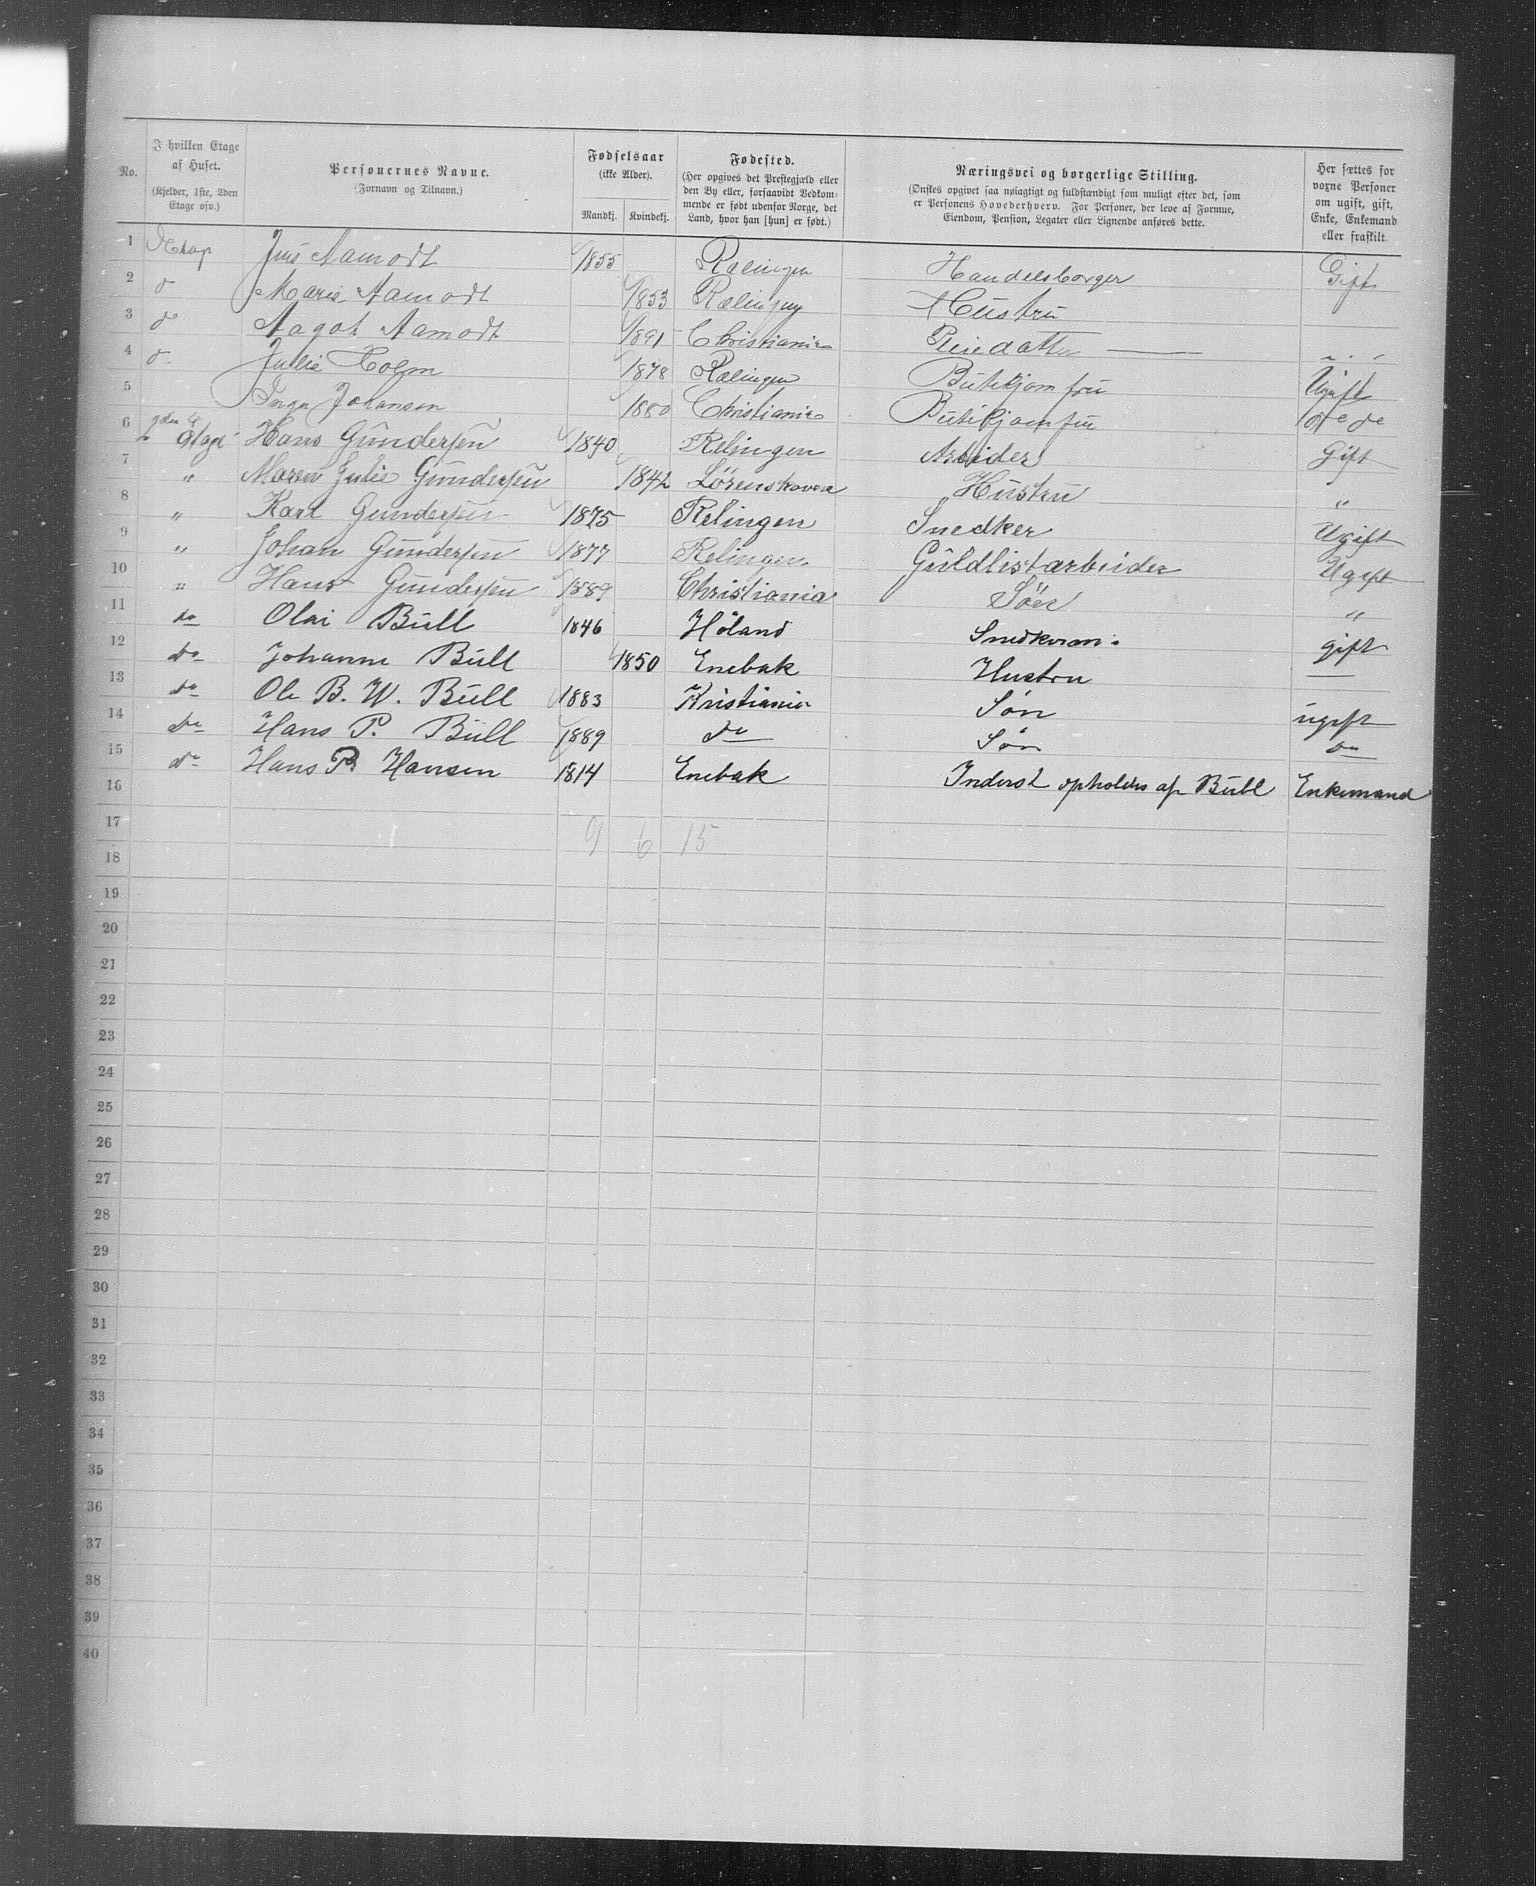 No. I hvilken Etage af Huset. (Kjelder, 1ste, 2den Etage osv.) Personernes Navne. (Fornavn og Tilnavn.) Fødselsaar (ikke Alder). Mandkj. Kvindekj. Fødested. (Her opgives det Prestegjæld eller den By eller, forsaavidt Vedkommende er født udenfor Norge, det Land, hvor han [hun] er født.) Næringsvei og borgerlige Stilling. (Ønskes opgivet saa nøiagtigt og fuldstændigt som muligt efter det, som er Personens Hovederhverv. For Personer, der leve af Formue, Eiendom, Pension, Legater eller Lignende anføres dette. Her sættes for voxne Personer om ugift, gift, Enke, Enkemand eller fraskilt.
1 Aamodt 1855 Rælingen Handelsborger Gift
2 Marie Aamodt 1853 Rælingen Hustru
3 do Aagot Aamodt 1891 Christiania Pleiedatter — " . "
4 Julie Holm 1878 Rælingen Butikjomfru Ugift
5 Inga Johansen 1880 Christiania Butikjomfru do do
6 2den Etage Hans Gundersen 1840 Relingen Arbider Gift
7 " Maren Julie Gundersen 1842 Lørenskoven Hustru "
8 " Karl Gundersen 1875 Relingen Snedker Ugift
9 " Johan Gundersen 1877 Relingen Guldlistarbeider Ugift
10 " Hans Gundersen 1889 Christiania Søn "
11 do Olai Bull 1846 Höland gift
12 do Johanne Bull 1850 Enebak Hustru —
13 do Ole B. W. Bull 1883 Kristiania Søn ugift
14 do Hans P. Bull 1889 do Søn do
15 do Hans P. Hansen 1814 Enebak Inderst opholdes af Bull Enkemand
16
17 9 6 15
18
19
20
21
22
23
24
25
26
27
28
29
30
31
32
33
34
35
36
37
38
39
40